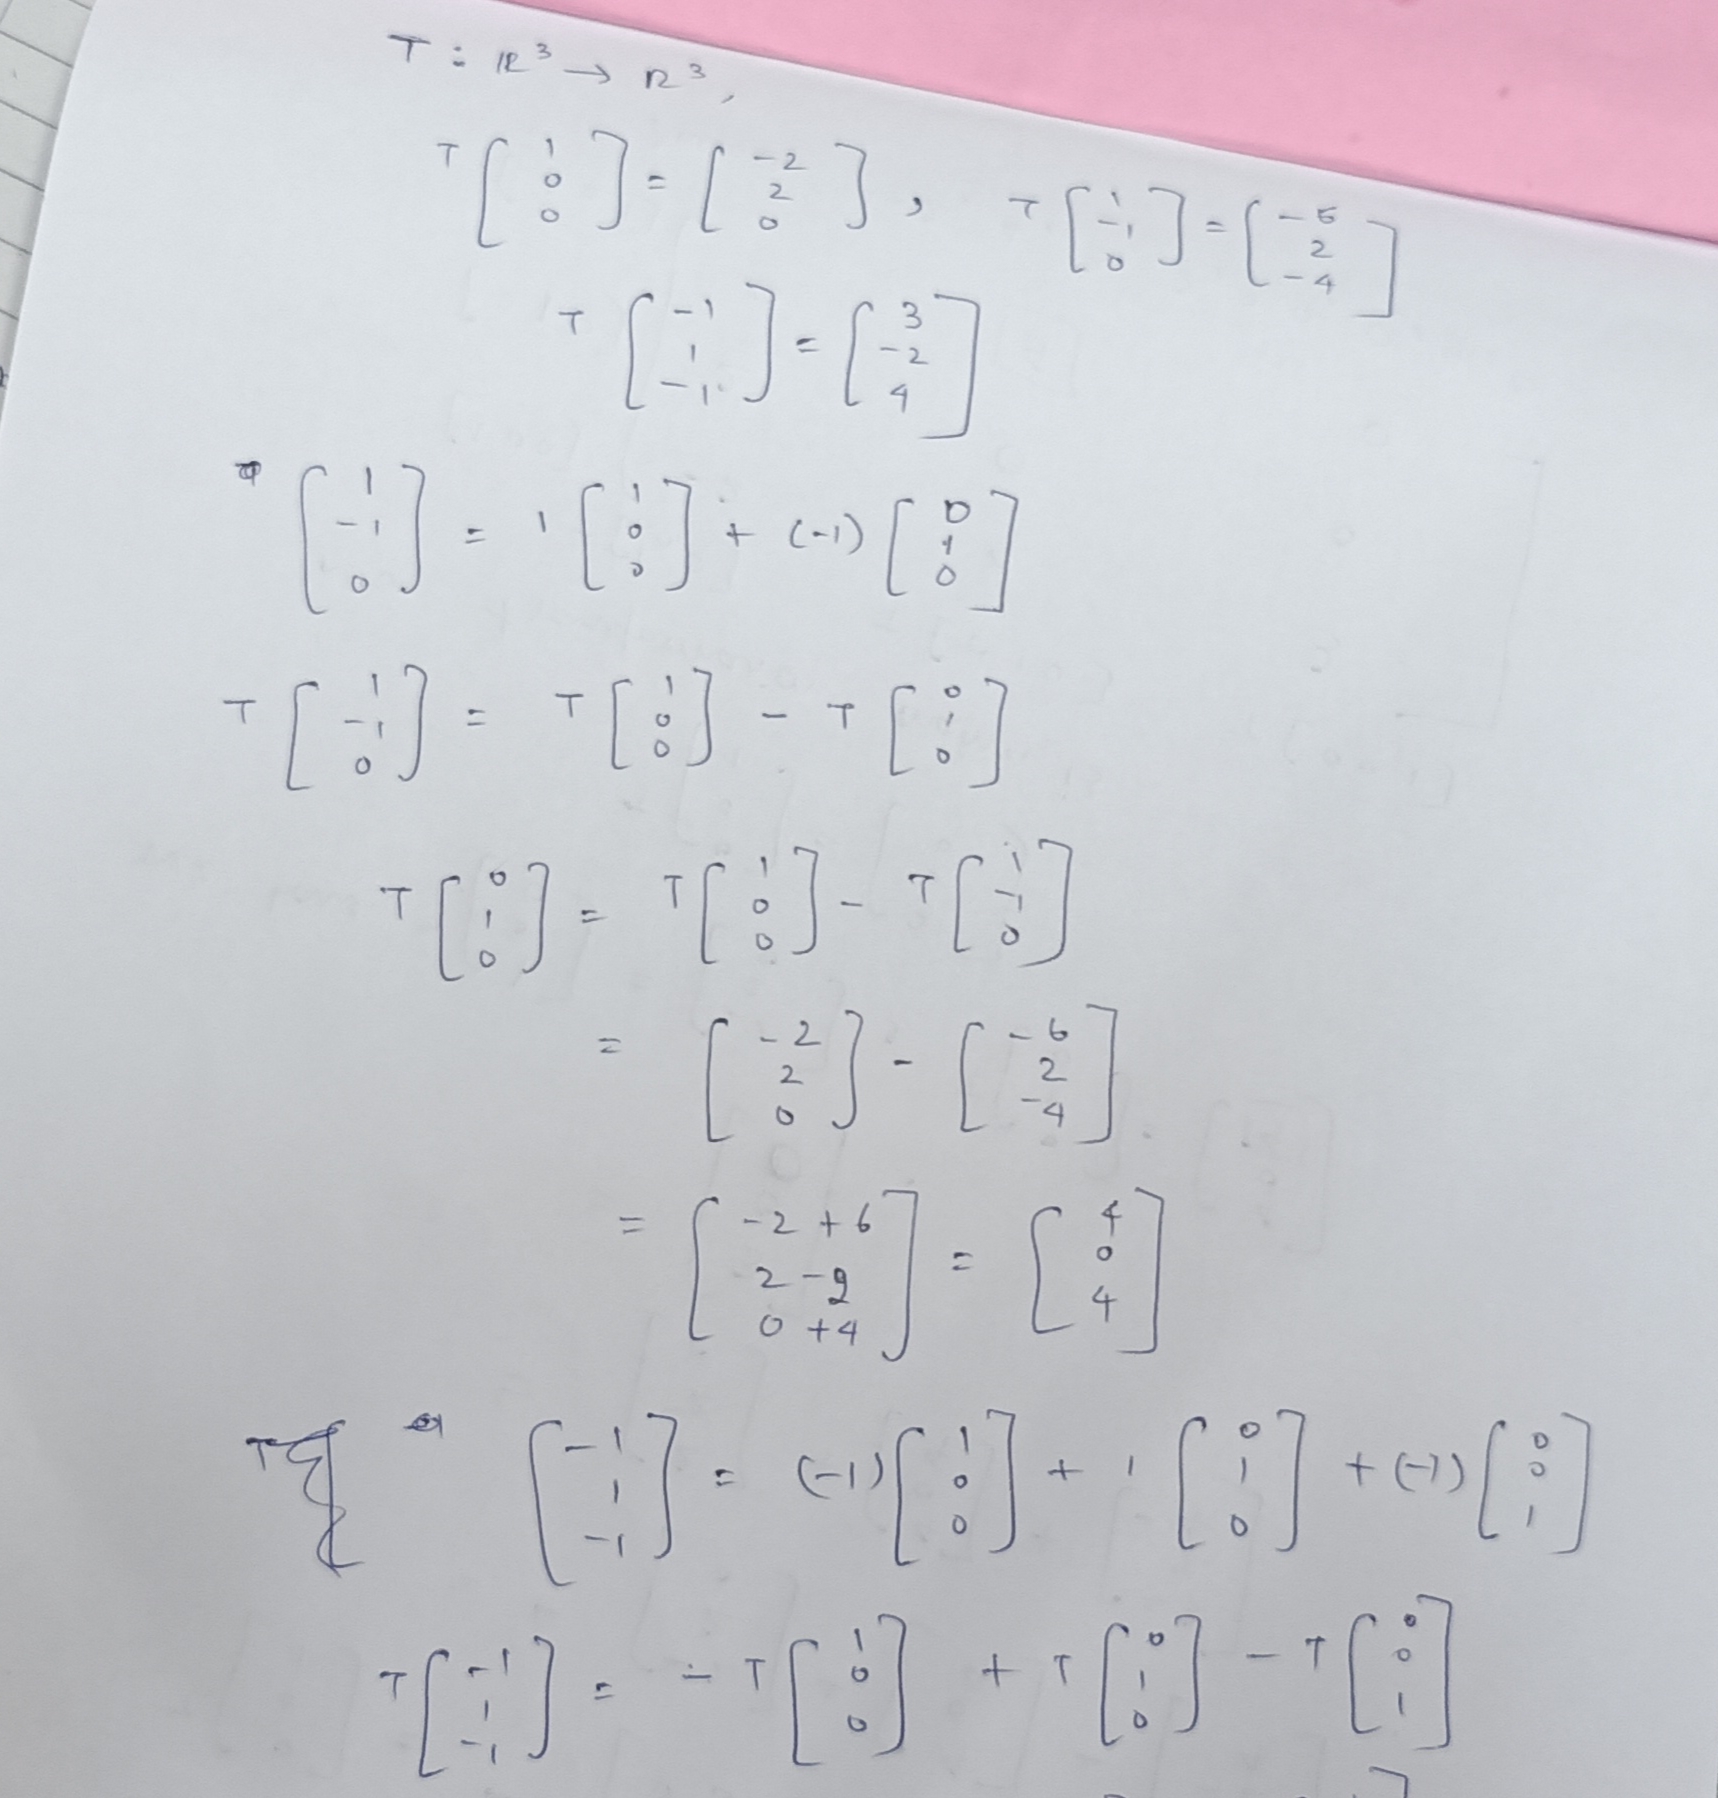 T : ℝ³ → ℝ³,
T [1 0 0] = [-2 2 0], T [1 -1 0] = [-5 2 -4]
T [-1 1 -1] = [3 -2 4]
[1 -1 0] = 1 [1 0 0] + (-1) [0 1 0]
T [1 -1 0] = T [1 0 0] - T [0 1 0]
T [0 1 0] = T [1 0 0] - T [1 -1 0]
= [-2 2 0] - [-6 2 -4]
= [-2+6 2-2 0+4] = [4 0 4]
[-1 1 -1] = (-1) [1 0 0] + 1 [0 1 0] + (-1) [0 0 1]
T [-1 1 -1] = - T [1 0 0] + T [0 1 0] - T [0 0 1]